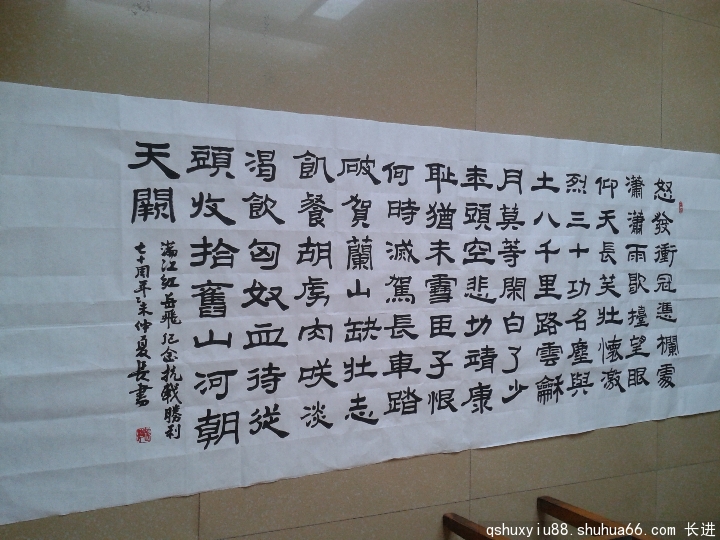 怒發衝冠憑欄處
瀟瀟雨歇擡望眼
仰天長笑壯懷激
烈三十功名塵與
土八千里路雲龢
月莫等閑白了少
年頭空悲切靖康
耻猶未雪臣子恨
何時滅駕長車踏
破賀蘭山缺壯志
飢餐胡虜肉咲淡
渴飲匈奴血待從
頭收拾舊山河朝
天闕
滿江紅岳飛紀念抗戰勝利
七十周年乙未仲夏長書
qshuxyiu88.shuhua66.com 长进